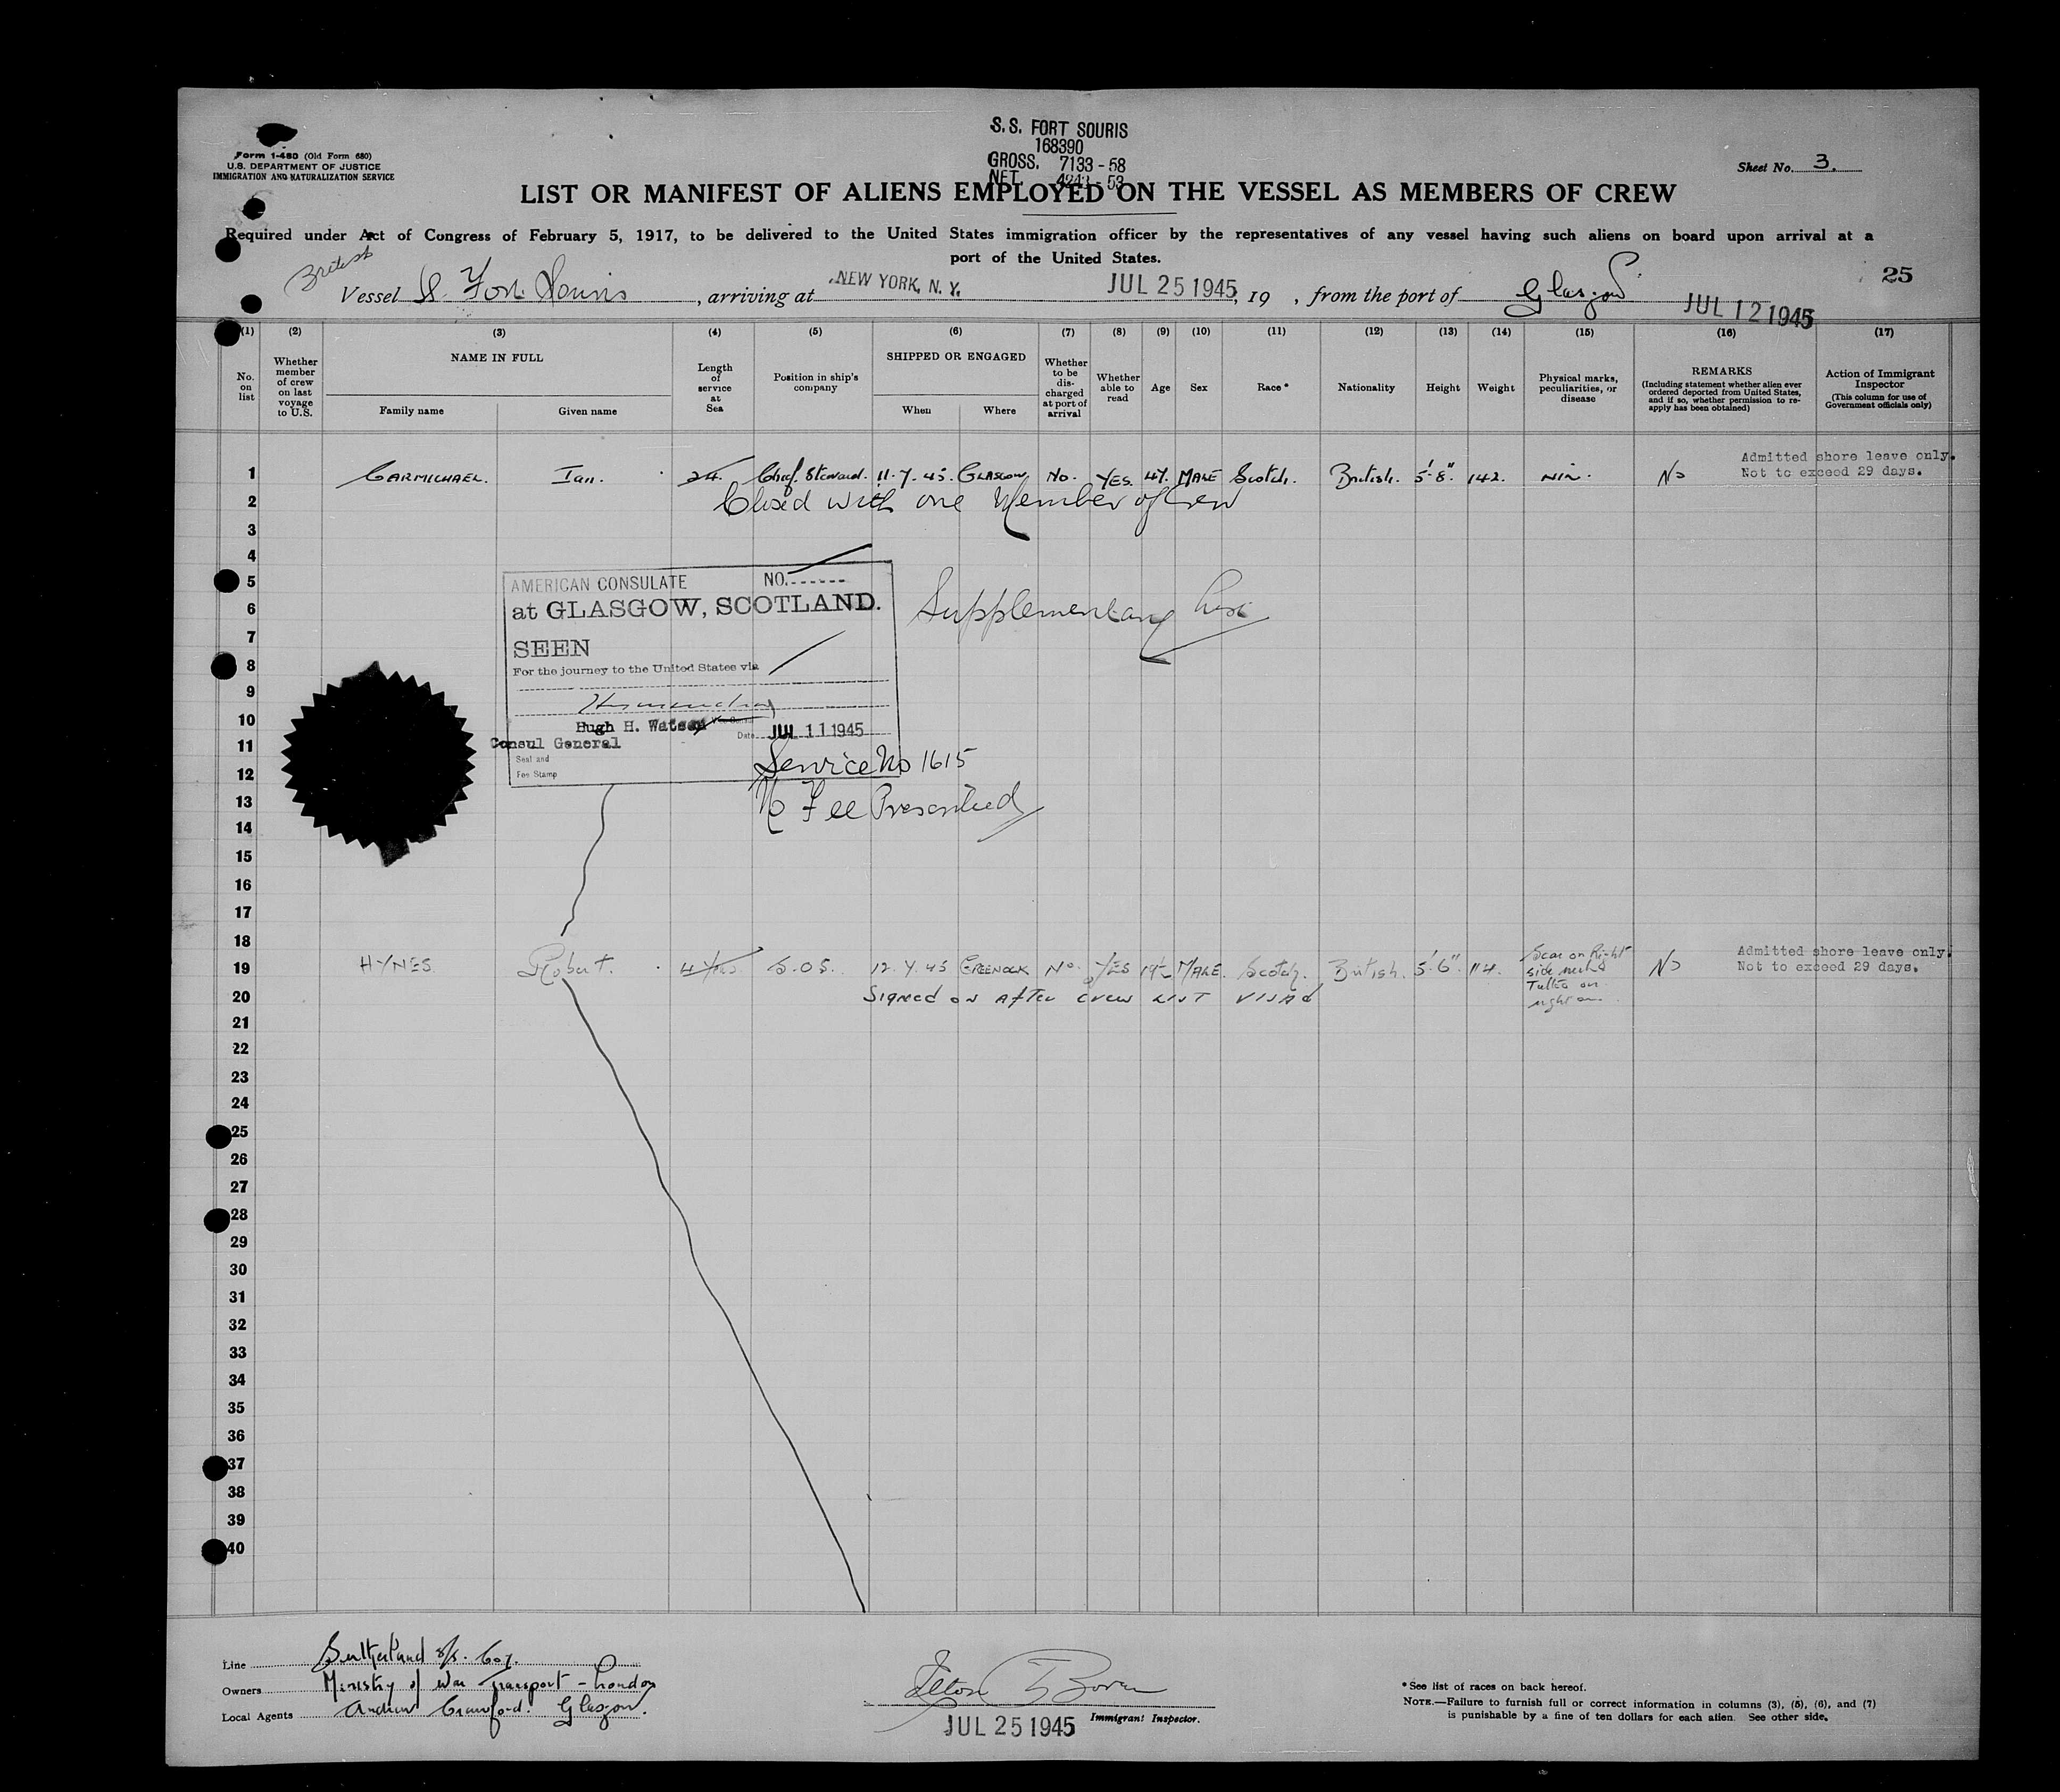 S.S. FORT SOURIS
168390
GROSS. 7133-58
NET. 4243-53
Form I-480 (Old Form 680)
U.S. DEPARTMENT OF JUSTICE
IMMIGRATION AND NATURALIZATION SERVICE
Sheet No. 3.
LIST OR MANIFEST OF ALIENS EMPLOYED ON THE VESSEL AS MEMBERS OF CREW
Required under Act of Congress of February 5, 1917, to be delivered to the United States immigration officer by the representatives of any vessel having such aliens on board upon arrival at a
port of the United States.
British
25
Vessel Fort Souris, arriving at NEW YORK, N. Y. JUL 25 1945, 19 , from the port of Glasgow JUL 12 1945
(1) (2) (3) (4) (5) (6) (7) (8) (9) (10) (11) (12) (13) (14) (15) (16) (17)
No. on list
Whether member of crew on last voyage to U.S.
NAME IN FULL
Family name
Given name
Length of service at Sea
Position in ship's company
SHIPPED OR ENGAGED
When
Where
Whether to be discharged at port of arrival
Whether able to read
Age
Sex
Race*
Nationality
Height
Weight
Physical marks, peculiarities, or disease
REMARKS
(Including statement whether alien ever ordered deported from United States, and if so, whether permission to reapply has been obtained)
Action of Immigrant Inspector
(This column for use of Government officials only)
Admitted shore leave only.
Not to exceed 29 days.
1 CARMICHAEL. Ian. 24. Chief Steward. 11.7.45. GLASGOW No. YES. 47. MALE Scotch. British. 5'-8" 142. NIL. No
2 Closed with one Member of Crew
3
4
5
6
7
8
9
10
11
12
13
14
15
16
17
18
AMERICAN CONSULATE NO.
at GLASGOW, SCOTLAND.
SEEN
For the journey to the United States via
Hugh H. Watson
Consul General
Date JUL 11 1945
Seal and
Fee Stamp
Supplementary
Service No 1615
No Fee Prescribed
Admitted shore leave only.
Not to exceed 29 days.
19 HYNES. Robert. 4 yrs. S.O.S. 12.7.45 GREENOCK No. YES 19 MALE. Scotch. British. 5'6". 114. Scar on Right side neck Tattoo on right arm No
20 Signed on after crew list visad
21
22
23
24
25
26
27
28
29
30
31
32
33
34
35
36
37
38
39
40
Line Sutherland S/S. Coy.
Owners Ministry of War Transport - London
Local Agents Andrew Crawford. Glasgow.
Immigrant Inspector.
JUL 25 1945
*See list of races on back hereof.
NOTE.—Failure to furnish full or correct information in columns (3), (5), (6), and (7)
is punishable by a fine of ten dollars for each alien. See other side.